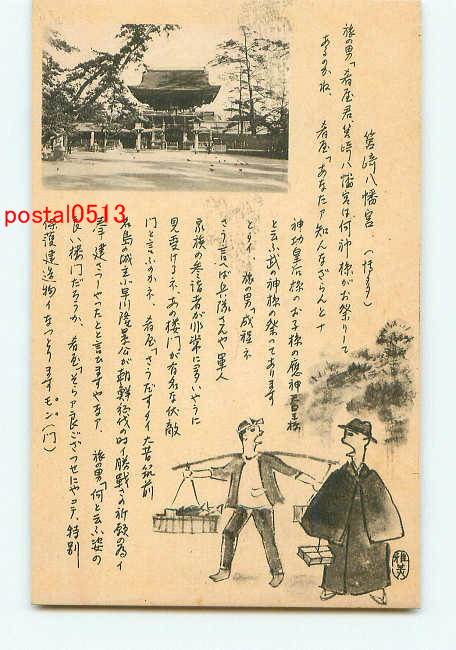 筥崎八幡宮 (博多)
旅の男「肴屋君、筥崎八幡宮は何神様がお祭りして
あるのかね、 肴屋「あなたァ知んなざらんとナ
神功皇后様のお子様の應神天皇様
と云ふ武の神様の祭ってあります
とタイ、 旅の男「成程ネ
さう言へば兵隊さんや軍人
家族の参詣者が非常に多いやうに
見受けるネ、あの楼門が有名な伏敵
門と言ふのかネ、 肴屋「さうだすタイ 大昔筑前
名島の城主小早川隆景公が朝鮮征伐の時イ勝戦さの祈願の為イ
奉イ建さっしゃったと言ひますやなァ、 旅の男「何と云ふ姿の
良い楼門だろうか、 肴屋「そらァ良ござっせにゃコテ、特別
保護建造物イなっとりますモン。(門)
雅美
postal0513